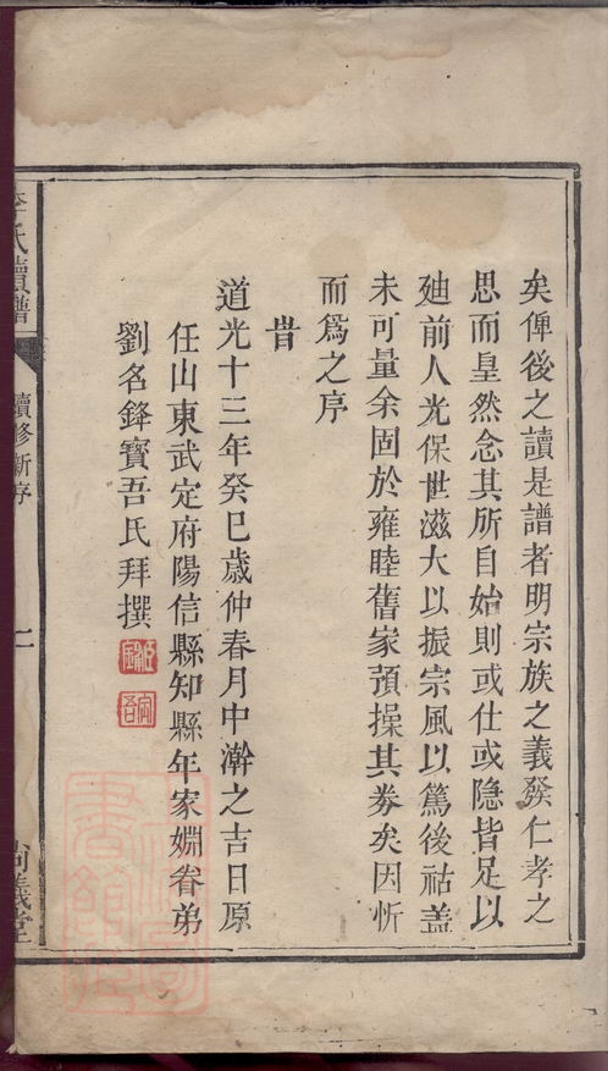 矣俾後之讀是譜者明宗族之義發仁孝之
思而皇然念其所自始則或仕或隐皆足以
廸前人光保世滋大以振宗風以篤後祜盖
未可量余固於雍睦舊家預操其券矣因忻
而爲之序
旹
道光十三年癸巳歲仲春月中澣之吉日原
任山東武定府陽信縣知縣年家姻眷弟
劉名鋒寳吾氏拜撰
李氏續譜
續修新序
二